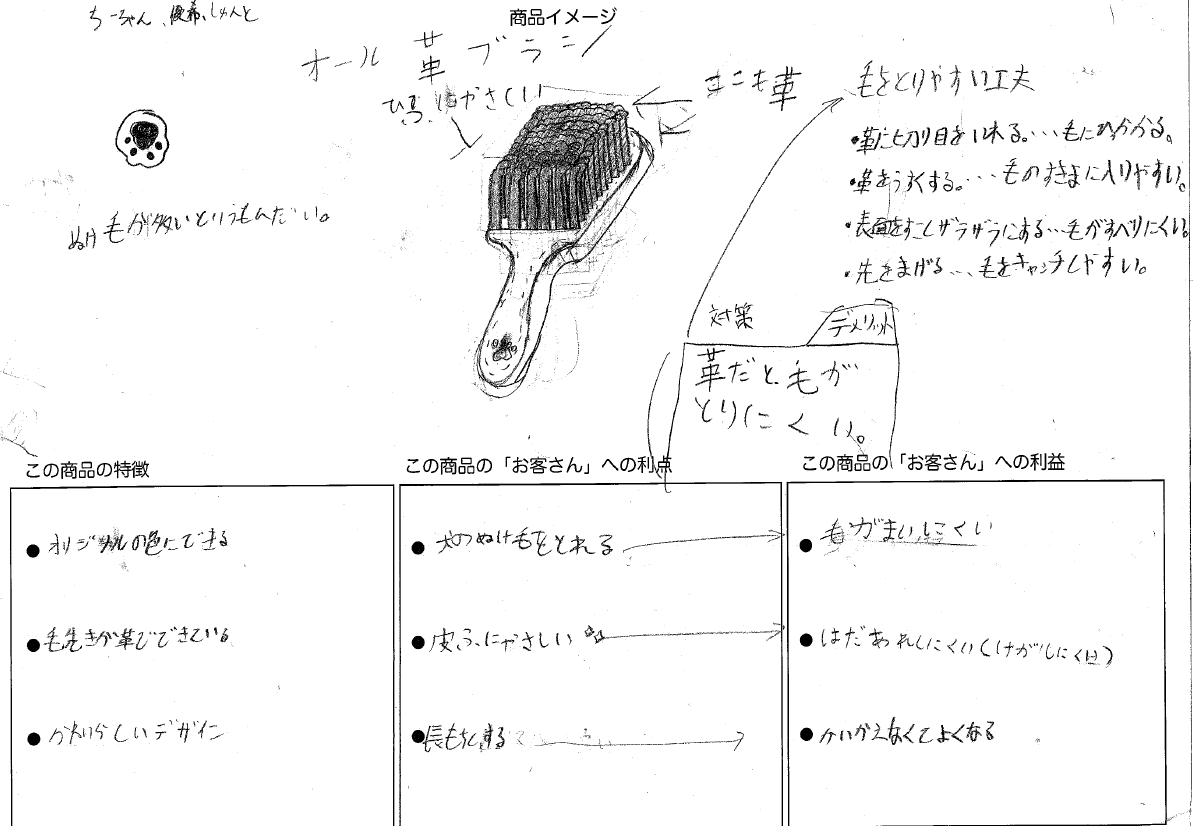 ちーちゃん、優希、しゅんと
商品イメージ
オール革ブラシ
ひふにやさしい
ここも革
毛をとりやすい工夫
・革に切り目を入れる。・・・毛にひっかかる。
・革をうすくする。・・・毛のすきまに入りやすい。
・表面をすこしザラザラにする・・・毛がすべりにくい。
・先をまげる・・・毛をキャッチしやすい。
ぬけ毛が多いというもんだい。
対策
デメリット
革だと毛が
とりにくい。
この商品の特徴
●オリジナルの色にできる
●毛先きが革でできている
●かわいらしいデザイン
この商品の「お客さん」への利点
●犬のぬけ毛をとれる
●皮ふにやさしい
●長もちする
この商品の「お客さん」への利益
●毛がまいにくい
●はだあれしにくい(けがしにくい)
●かいかえなくてよくなる